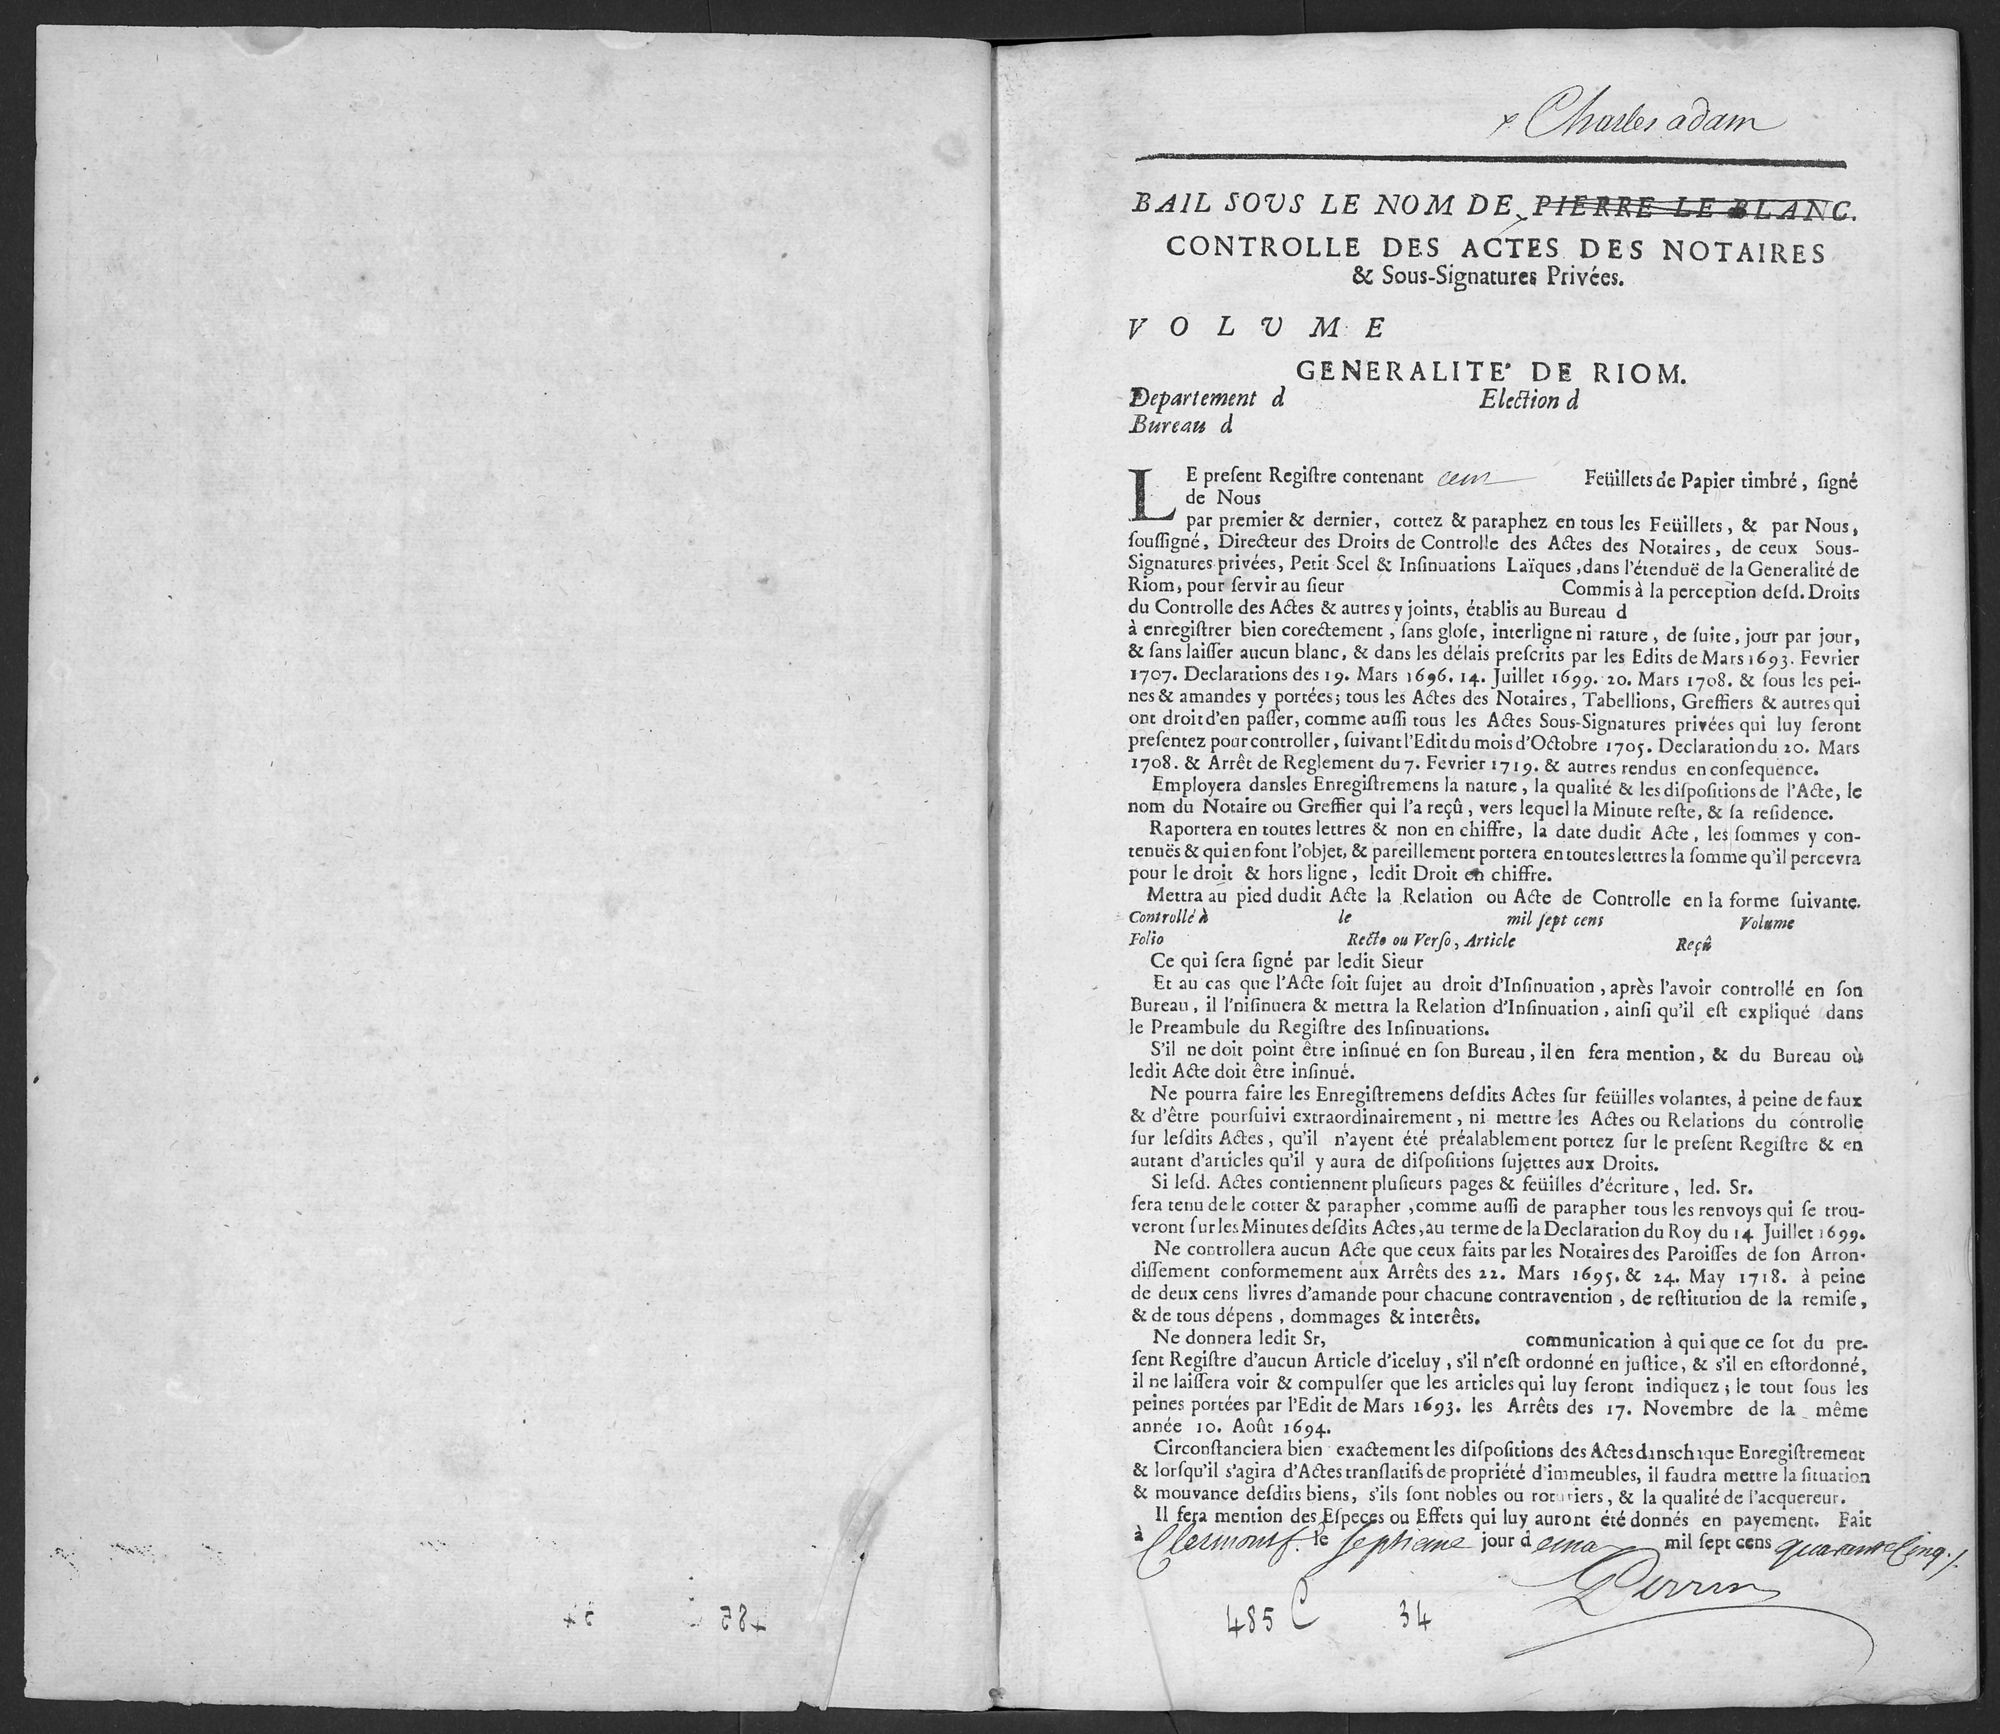 x Charles adam
BAIL SOUS LE NOM DE PIERRE LE BLANC.
CONTROLLE DES ACTES DES NOTAIRES
& Sous-Signatures Privées.
VOLUME
GENERALITE' DE RIOM.
Departement d Election d
Bureau d
LE preſent Regiſtre contenant cent Feüillets de Papier timbré, ſigné
de Nous
par premier & dernier, cottez & paraphez en tous les Feüillets, & par Nous,
ſouſſigné, Directeur des Droits de Controlle des Actes des Notaires, de ceux Sous-
Signatures privées, Petit Scel & Inſinuations Laïques, dans l'étenduë de la Generalité de
Riom, pour ſervir au ſieur Commis à la perception deſd. Droits
du Controlle des Actes & autres y joints, établis au Bureau d
à enregiſtrer bien corectement, ſans gloſe, interligne ni rature, de ſuite, jour par jour,
& ſans laiſſer aucun blanc, & dans les délais preſcrits par les Edits de Mars 1693. Fevrier
1707. Declarations des 19. Mars 1696. 14. Juillet 1699. 20. Mars 1708. & ſous les pei-
nes & amandes y portées; tous les Actes des Notaires, Tabellions, Greffiers & autres qui
ont droit d'en paſſer, comme auſſi tous les Actes Sous-Signatures privées qui luy ſeront
preſentez pour controller, ſuivant l'Edit du mois d'Octobre 1705. Declaration du 20. Mars
1708. & Arrêt de Reglement du 7. Fevrier 1719. & autres rendus en conſequence.
Employera dansles Enregiſtremens la nature, la qualité & les diſpoſitions de l'Acte, le
nom du Notaire ou Greffier qui l'a reçû, vers lequel la Minute reſte, & ſa reſidence.
Raportera en toutes lettres & non en chiffre, la date dudit Acte, les ſommes y con-
tenuës & qui en font l'objet, & pareillement portera en toutes lettres la ſomme qu'il percevra
pour le droit & hors ligne, ledit Droit en chiffre.
Mettra au pied dudit Acte la Relation ou Acte de Controlle en la forme ſuivante.
Controllé à le mil ſept cens Volume
Folio Recto ou Verſo, Article Reçû
Ce qui ſera ſigné par ledit Sieur
Et au cas que l'Acte ſoit ſujet au droit d'Inſinuation, après l'avoir controllé en ſon
Bureau, il l'niſinuera & mettra la Relation d'Inſinuation, ainſi qu'il eſt expliqué dans
le Preambule du Regiſtre des Inſinuations.
S'il ne doit point être inſinué en ſon Bureau, il en ſera mention, & du Bureau où
ledit Acte doit être inſinué.
Ne pourra faire les Enregiſtremens deſdits Actes ſur feüilles volantes, à peine de faux
& d'être pourſuivi extraordinairement, ni mettre les Actes ou Relations du controlle
ſur leſdits Actes, qu'il n'ayent été préalablement portez ſur le preſent Regiſtre & en
autant d'articles qu'il y aura de diſpoſitions ſujettes aux Droits.
Si leſd. Actes contiennent pluſieurs pages & feüilles d'écriture, led. Sr.
ſera tenu de le cotter & parapher, comme auſſi de parapher tous les renvoys qui ſe trou-
veront ſur les Minutes deſdits Actes, au terme de la Declaration du Roy du 14 Juillet 1699.
Ne controllera aucun Acte que ceux faits par les Notaires des Paroiſſes de ſon Arron-
diſſement conformement aux Arrêts des 22. Mars 1695. & 24. May 1718. à peine
de deux cens livres d'amande pour chacune contravention, de reſtitution de la remiſe,
& de tous dépens, dommages & interêts.
Ne donnera ledit Sr, communication à qui que ce ſot du pre-
ſent Regiſtre d'aucun Article d'iceluy, s'il n'eſt ordonné en juſtice, & s'il en eſtordonné,
il ne laiſſera voir & compulſer que les articles qui luy ſeront indiquez; le tout ſous les
peines portées par l'Edit de Mars 1693. les Arrêts des 17. Novembre de la même
année 10. Août 1694.
Circonſtanciera bien exactement les diſpoſitions des Actes danschaque Enregiſtrement
& lorſqu'il s'agira d'Actes tranſlatifs de propriété d'immeubles, il faudra mettre la ſituation
& mouvance deſdits biens, s'ils ſont nobles ou roturiers, & la qualité de l'acquereur.
Il fera mention des Eſpeces ou Effets qui luy auront été donnés en payement. Fait
à Clermont f. le septieme jour d mil ſept cens quarante Cinq./.
Perrin
485 C 34